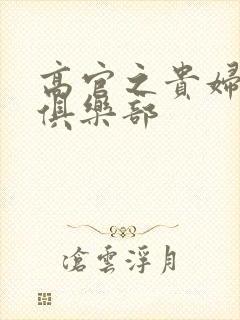 高官之貴婦
俱樂部
滄雲浮月